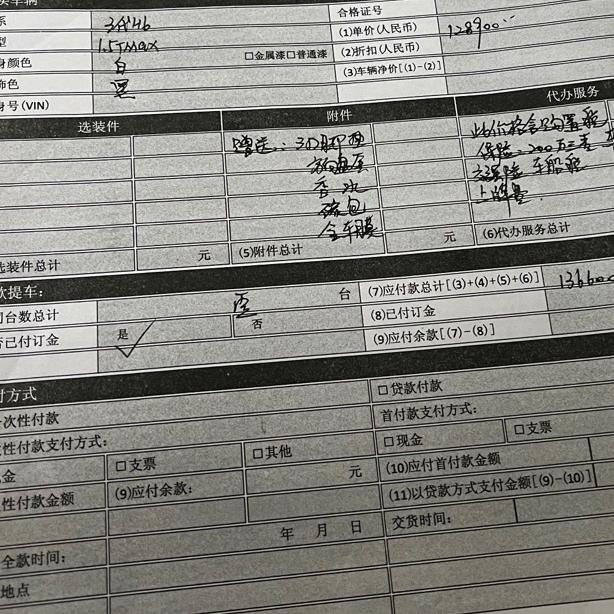 买车辆
系 3代46 合格证号
型 1.5TMAX (1)单价(人民币) 128900
身颜色 白 □金属漆□普通漆 (2)折扣(人民币)
饰色 黑 (3)车辆净价[(1)-(2)]
身号(VIN)
选装件 附件 代办服务
赠送:3D脚垫 此价格含购置税
方向盘套 保险:200万三责
香水 交强险 车船税
上牌费
全车膜
选装件总计 元 (5)附件总计 元 (6)代办服务总计
款提车:
司台数总计 壹 台 (7)应付款总计[(3)+(4)+(5)+(6)] 136600
否已付订金 是 否 (8)已付订金
(9)应付余款[(7)-(8)]
付方式 □贷款付款
一次性付款 首付款支付方式:
性付款支付方式: □现金 □支票
现金 □支票 □其他 (10)应付首付款金额
性付款金额 (9)应付余款: 元 (11)以贷款方式支付金额[(9)-(10)]
年 月 日 交货时间:
全款时间:
地点